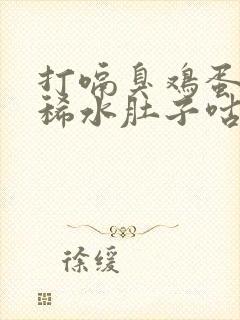 打嗝臭鸡蛋
稀水肚子咕
徐缓